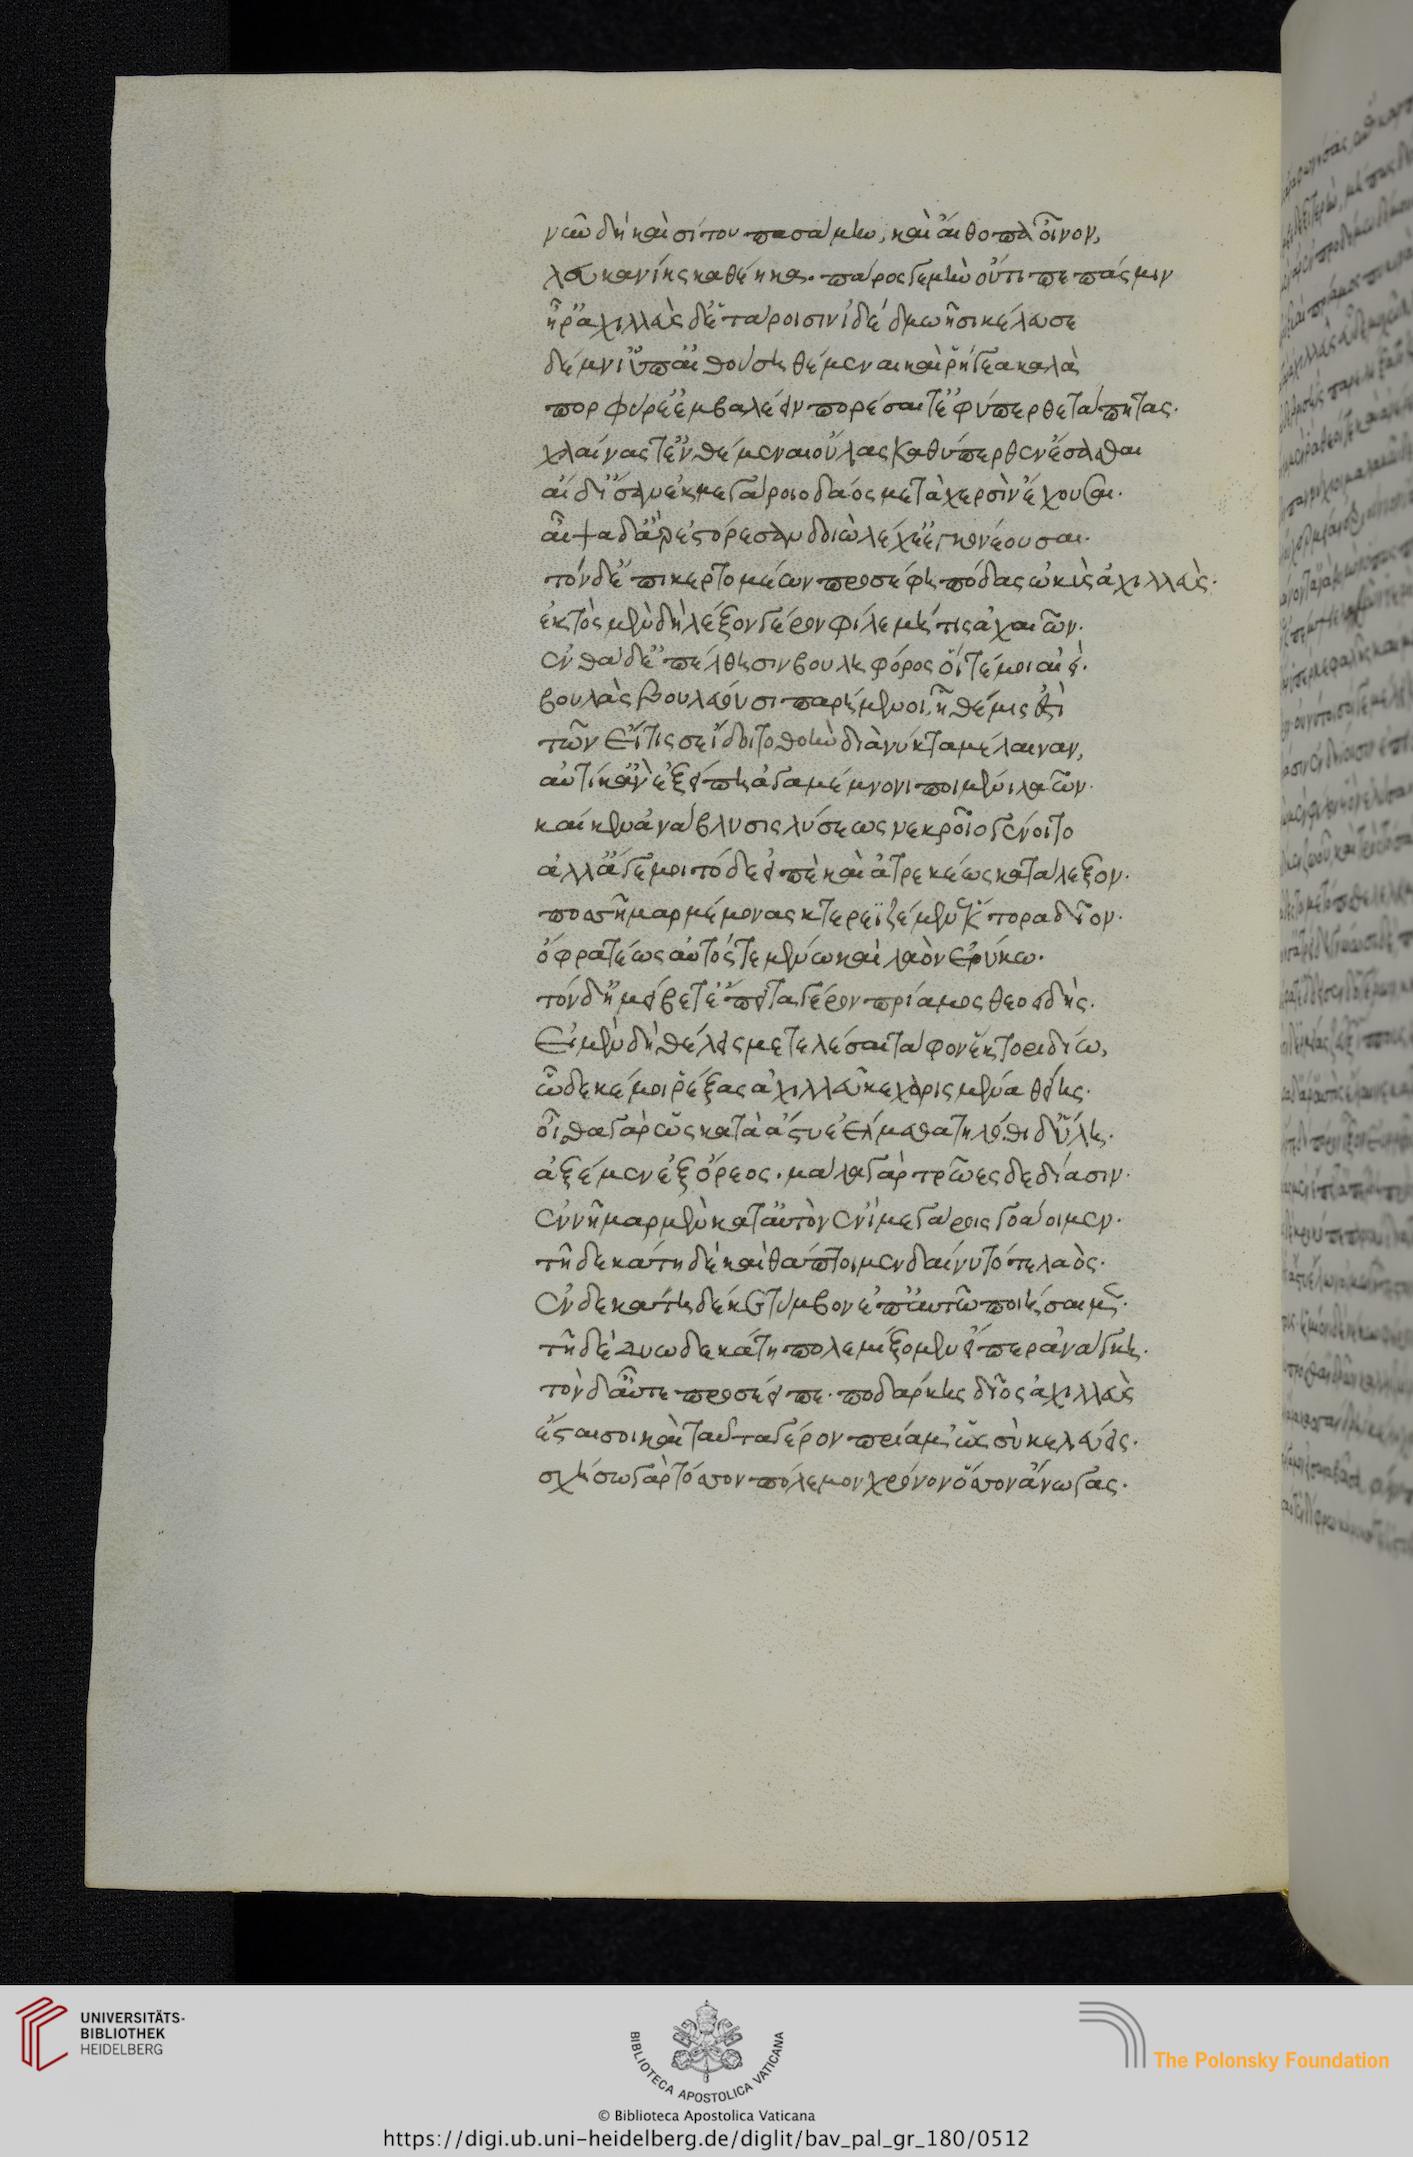 νῦν δὴ καὶ σίτου πασάμην, καὶ αἴθοπα οἶνον,
λαυκανίης καθέηκα. πάρος γε μὲν οὔτι πεπάσμην
ἦ ῥ' ἀχιλλεὺς δ' ἑτάροισιν ἰδὲ δμωῇσι κέλευσε
δέμνι' ὑπ' αἰθούσῃ θέμεναι καὶ ῥήγεα καλὰ
πορφύρε' ἐμβαλέειν στορέσαι τ' ἐφύπερθε τάπητας.
χλαίνας τ' ἐνθέμεναι οὔλας καθύπερθεν ἕσασθαι
αἱ δ' ἴσαν ἐκ μεγάροιο δάος μετὰ χερσὶν ἔχουσαι.
αἶψα δ' ἄρ' ἐστόρεσαν δοιὼ λέχε' ἐγκονέουσαι.
τὸν δ' ἐπικερτομέων προσέφη πόδας ὠκὺς ἀχιλλεὺς.
ἐκτὸς μὲν δὴ λέξο γέρον φίλε μή τις ἀχαιῶν.
ἐνθάδ' ἐπέλθησιν βουληφόρος οἵτέ μοι αἰεὶ.
βουλὰς βουλεύουσι παρήμενοι, ἣ θέμις ἐστὶ
τῶν εἴ τίς σε ἴδοιτο θοὴν διὰ νύκτα μέλαιναν,
αὐτίκ' ἂν ἐξείπῃ ἀγαμέμνονι ποιμένι λαῶν.
καί κεν ἀνάβλυσις λύσεως νεκροῖο γένοιτο
ἀλλ' ἄγε μοι τόδε εἰπὲ καὶ ἀτρεκέως κατάλεξον.
ποσσῆμαρ μέμονας κτερεϊζέμεν ἕκτορα δῖον.
ὄφρα τέως αὐτός τε μένω καὶ λαὸν ἐρύκω.
τὸν δ' ἠμείβετ' ἔπειτα γέρον πρίαμος θεοειδής.
εἰ μὲν δὴ θέλεις με τελέσαι τάφον ἕκτορι δίω,
ὧδέ κέ μοι ῥέξας ἀχιλλεῦ κεχαρισμένα θείης.
οἶσθα γὰρ ὡς κατὰ ἄστυ ἐέλμεθα τηλόθι δ' ὕλη.
ἀξέμεν ἐξ ὄρεος. μάλα γὰρ τρῶες δεδίασιν.
ἐννῆμαρ μὲν κατ' αὐτὸν ἐνὶ μεγάροις γοάοιμεν.
τῇ δεκάτῃ δὲ καὶ θάπτοιμεν δαίνυτό τε λαὸς.
ἐνδεκάτῃ δέ κε τύμβον ἐπ' αὐτῶ ποιήσαιμεν.
τῇ δὲ δυωδεκάτῃ πολεμίξομεν εἴπερ ἀνάγκη.
τὸν δ' αὖτε προσέειπε. ποδάρκης δῖος ἀχιλλεὺς
ἔσται σοι καὶ ταῦτα γέρον πρίαμ' ὡς σὺ κελεύεις.
σχήσω γὰρ τόσσον πόλεμον χρόνον ὅσσον ἄνωγας.
UNIVERSITÄTS-
BIBLIOTHEK
HEIDELBERG
BIBLIOTECA APOSTOLICA VATICANA
The Polonsky Foundation
© Biblioteca Apostolica Vaticana
https://digi.ub.uni-heidelberg.de/diglit/bav_pal_gr_180/0512